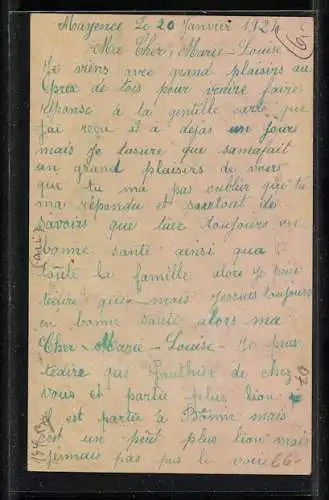 Mayence Le 20 Janvier 1924
Ma Cher, Marie-Louise
Je viens avec grand plaisirs au
pres de tois pour venire faire
réponse à la gentille carte que
jai reçu il a dejas un jours
mais je tasure que samafait
un grand plaisirs de voirs
que tu ma pas oublier qui tu
ma répondu et sourtout de
savoirs que tuer toujours en
bonne santé ainsi qua
toute la famille alors je peut
tedire que mois jesuis toujours
en bonne santé alors ma
Cher Marie-Louise-Je peus
tedire que Gauthier de chez
vous et partie plus lion
il est partie à Bonne mais
est un peut plus lion mais
jemais pas pus le voire
6-